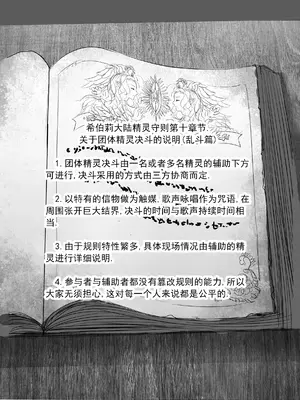 希伯莉大陆精灵守则第十章节.
关于团体精灵决斗的说明(乱斗篇)
1. 团体精灵决斗由一名或者多名精灵的辅助下方
可进行, 决斗采用的方式由三方协商而定.
2. 以特有的信物做为触媒, 歌声咏唱作为咒语. 在
周围张开巨大结界, 决斗的时间与歌声持续时间相
当.
3. 由于规则特性繁多, 具体现场情况由辅助的精
灵进行详细说明.
4. 参与者与辅助者都没有篡改规则的能力, 所以
大家无须担心, 这对每一个人来说都是公平的.